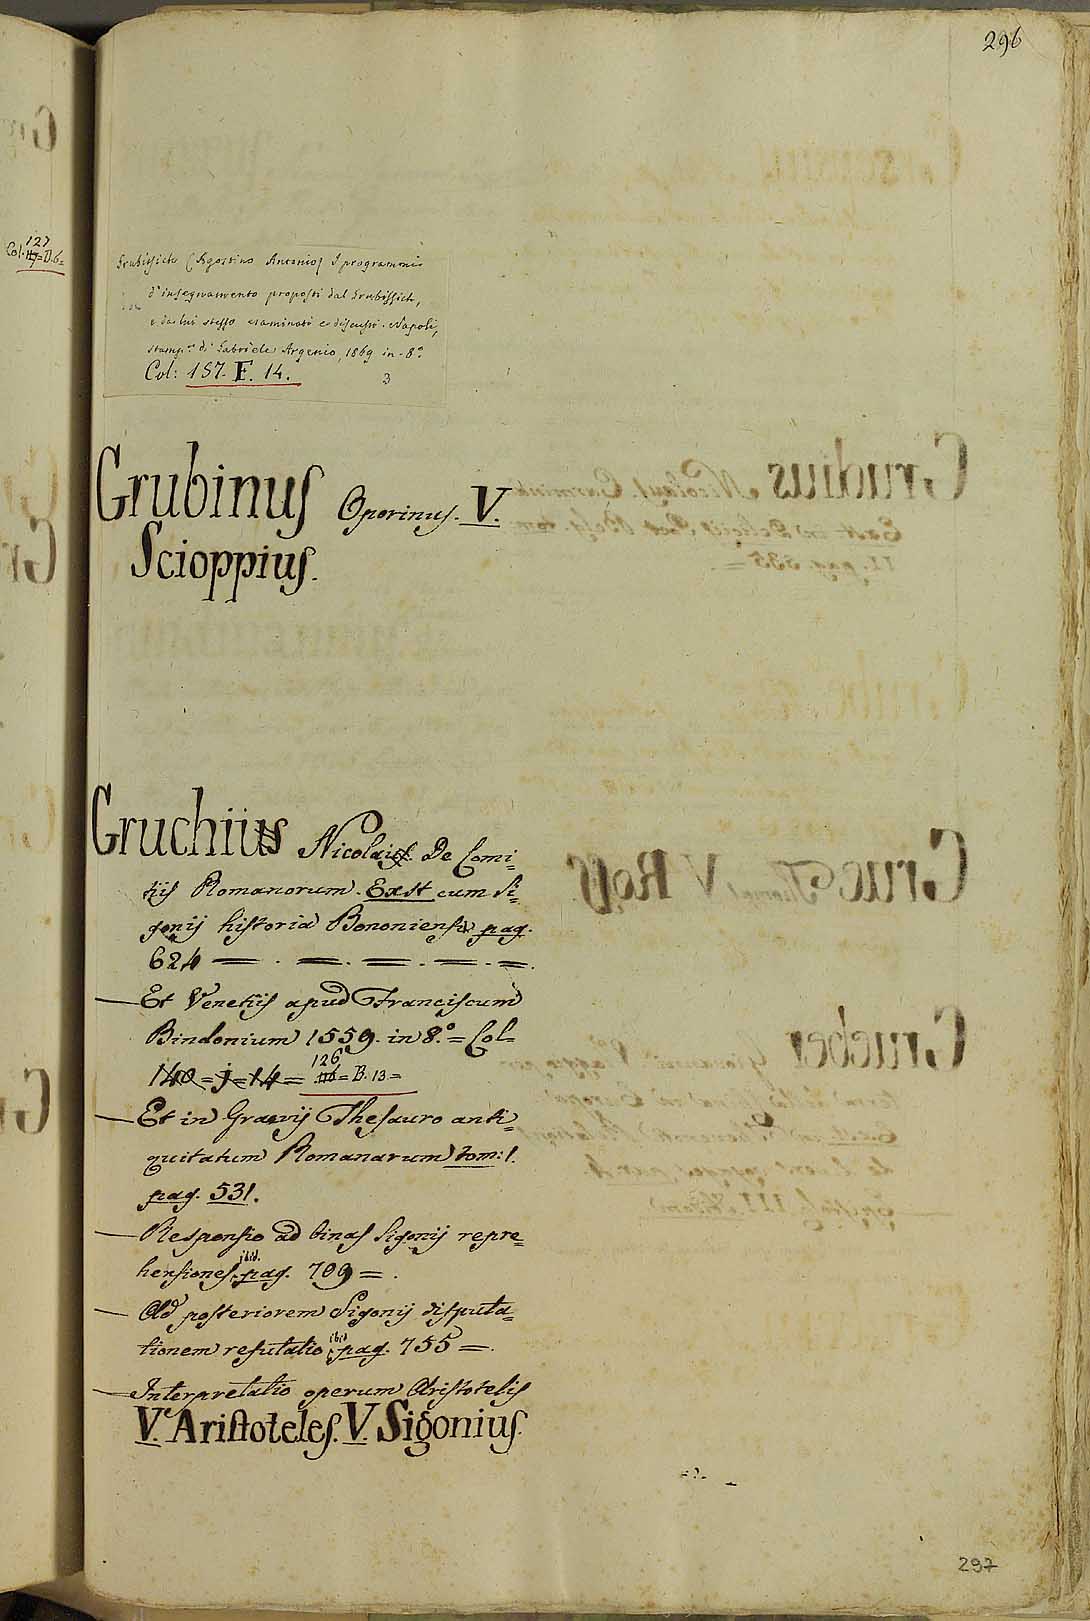 296
127
Col. 117=D.6=
Grubissich (Agostino Antonio) I programmi
d'insegnamento proposti dal Grubissich,
e da lui stesso esaminati e discussi. Napoli,
stamp.ᵃ di Gabriele Argenio, 1869 in-8.°
Col: 157. F. 14.
3
Grubinus Oporinus. V.
Scioppius.
Gruchius Nicolaus. De Comi=
tijs Romanorum. Exst cum Si=
gonij historia Bononiensi pag.
624
— Et Venetijs apud Franciscum
Bindonium 1559. in 8.° = Col=
126
140=j=14= 116=B.13=
— Et in Graevij Thesauro anti=
quitatum Romanarum tom: 1.
pag. 531.
— Responsio ad binas Sigonij repre=
hensiones, ibid. pag. 709 =.
— Ad posteriorem Sigonij disputa=
tionem refutatio ibid. pag. 755 =.
— Interpretatio operum Aristotelis
V. Aristoteles. V. Sigonius.
297